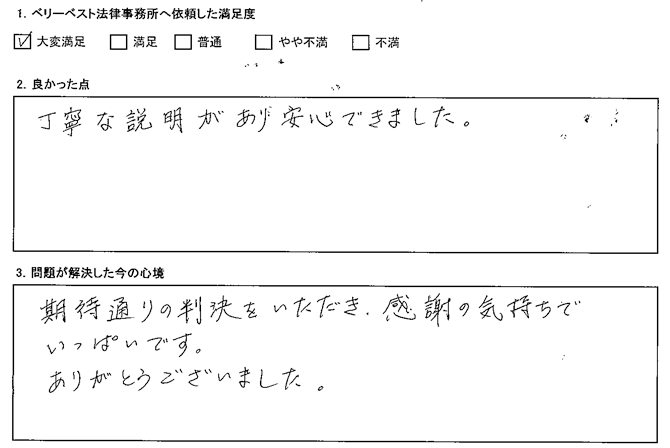 1. ベリーベスト法律事務所へ依頼した満足度
☑ 大変満足 ☐ 満足 ☐ 普通 ☐ やや不満 ☐ 不満
2. 良かった点
丁寧な説明があり安心できました。
3. 問題が解決した今の心境
期待通りの判決をいただき、感謝の気持ちで
いっぱいです。
ありがとうございました。